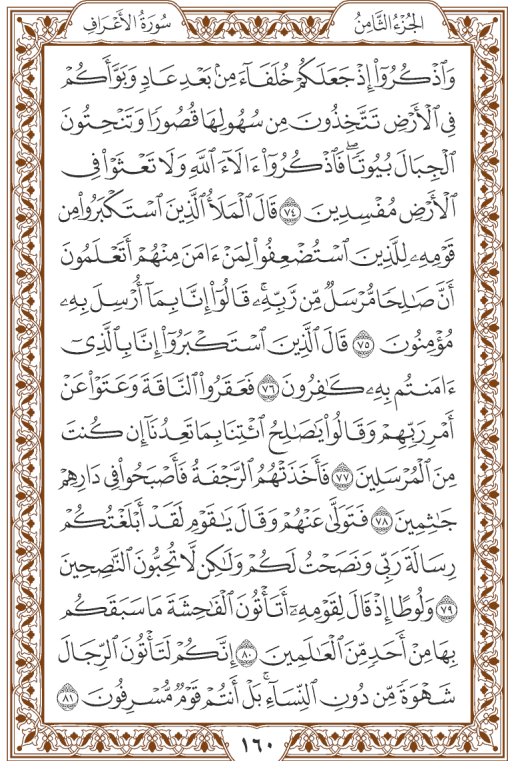 الجزء الثامن
سورة الأعراف
وَٱذۡكُرُوٓاْ إِذۡ جَعَلَكُمۡ خُلَفَآءَ مِنۢ بَعۡدِ عَادٖ وَبَوَّأَكُمۡ
فِي ٱلۡأَرۡضِ تَتَّخِذُونَ مِن سُهُولِهَا قُصُورٗا وَتَنۡحِتُونَ
ٱلۡجِبَالَ بُيُوتٗاۖ فَٱذۡكُرُوٓاْ ءَالَآءَ ٱللَّهِ وَلَا تَعۡثَوۡاْ فِي
ٱلۡأَرۡضِ مُفۡسِدِينَ ٧٤ قَالَ ٱلۡمَلَأُ ٱلَّذِينَ ٱسۡتَكۡبَرُواْ مِن
قَوۡمِهِۦ لِلَّذِينَ ٱسۡتُضۡعِفُواْ لِمَنۡ ءَامَنَ مِنۡهُمۡ أَتَعۡلَمُونَ
أَنَّ صَٰلِحٗا مُّرۡسَلٞ مِّن رَّبِّهِۦۚ قَالُوٓاْ إِنَّا بِمَآ أُرۡسِلَ بِهِۦ
مُؤۡمِنُونَ ٧٥ قَالَ ٱلَّذِينَ ٱسۡتَكۡبَرُوٓاْ إِنَّا بِٱلَّذِيٓ
ءَامَنتُم بِهِۦ كَٰفِرُونَ ٧٦ فَعَقَرُواْ ٱلنَّاقَةَ وَعَتَوۡاْ عَنۡ
أَمۡرِ رَبِّهِمۡ وَقَالُواْ يَٰصَٰلِحُ ٱئۡتِنَا بِمَا تَعِدُنَآ إِن كُنتَ
مِنَ ٱلۡمُرۡسَلِينَ ٧٧ فَأَخَذَتۡهُمُ ٱلرَّجۡفَةُ فَأَصۡبَحُواْ فِي دَارِهِمۡ
جَٰثِمِينَ ٧٨ فَتَوَلَّىٰ عَنۡهُمۡ وَقَالَ يَٰقَوۡمِ لَقَدۡ أَبۡلَغۡتُكُمۡ
رِسَالَةَ رَبِّي وَنَصَحۡتُ لَكُمۡ وَلَٰكِن لَّا تُحِبُّونَ ٱلنَّٰصِحِينَ
٧٩ وَلُوطًا إِذۡ قَالَ لِقَوۡمِهِۦٓ أَتَأۡتُونَ ٱلۡفَٰحِشَةَ مَا سَبَقَكُم
بِهَا مِنۡ أَحَدٖ مِّنَ ٱلۡعَٰلَمِينَ ٨٠ إِنَّكُمۡ لَتَأۡتُونَ ٱلرِّجَالَ
شَهۡوَةٗ مِّن دُونِ ٱلنِّسَآءِۚ بَلۡ أَنتُمۡ قَوۡمٞ مُّسۡرِفُونَ ٨١
١٦٠